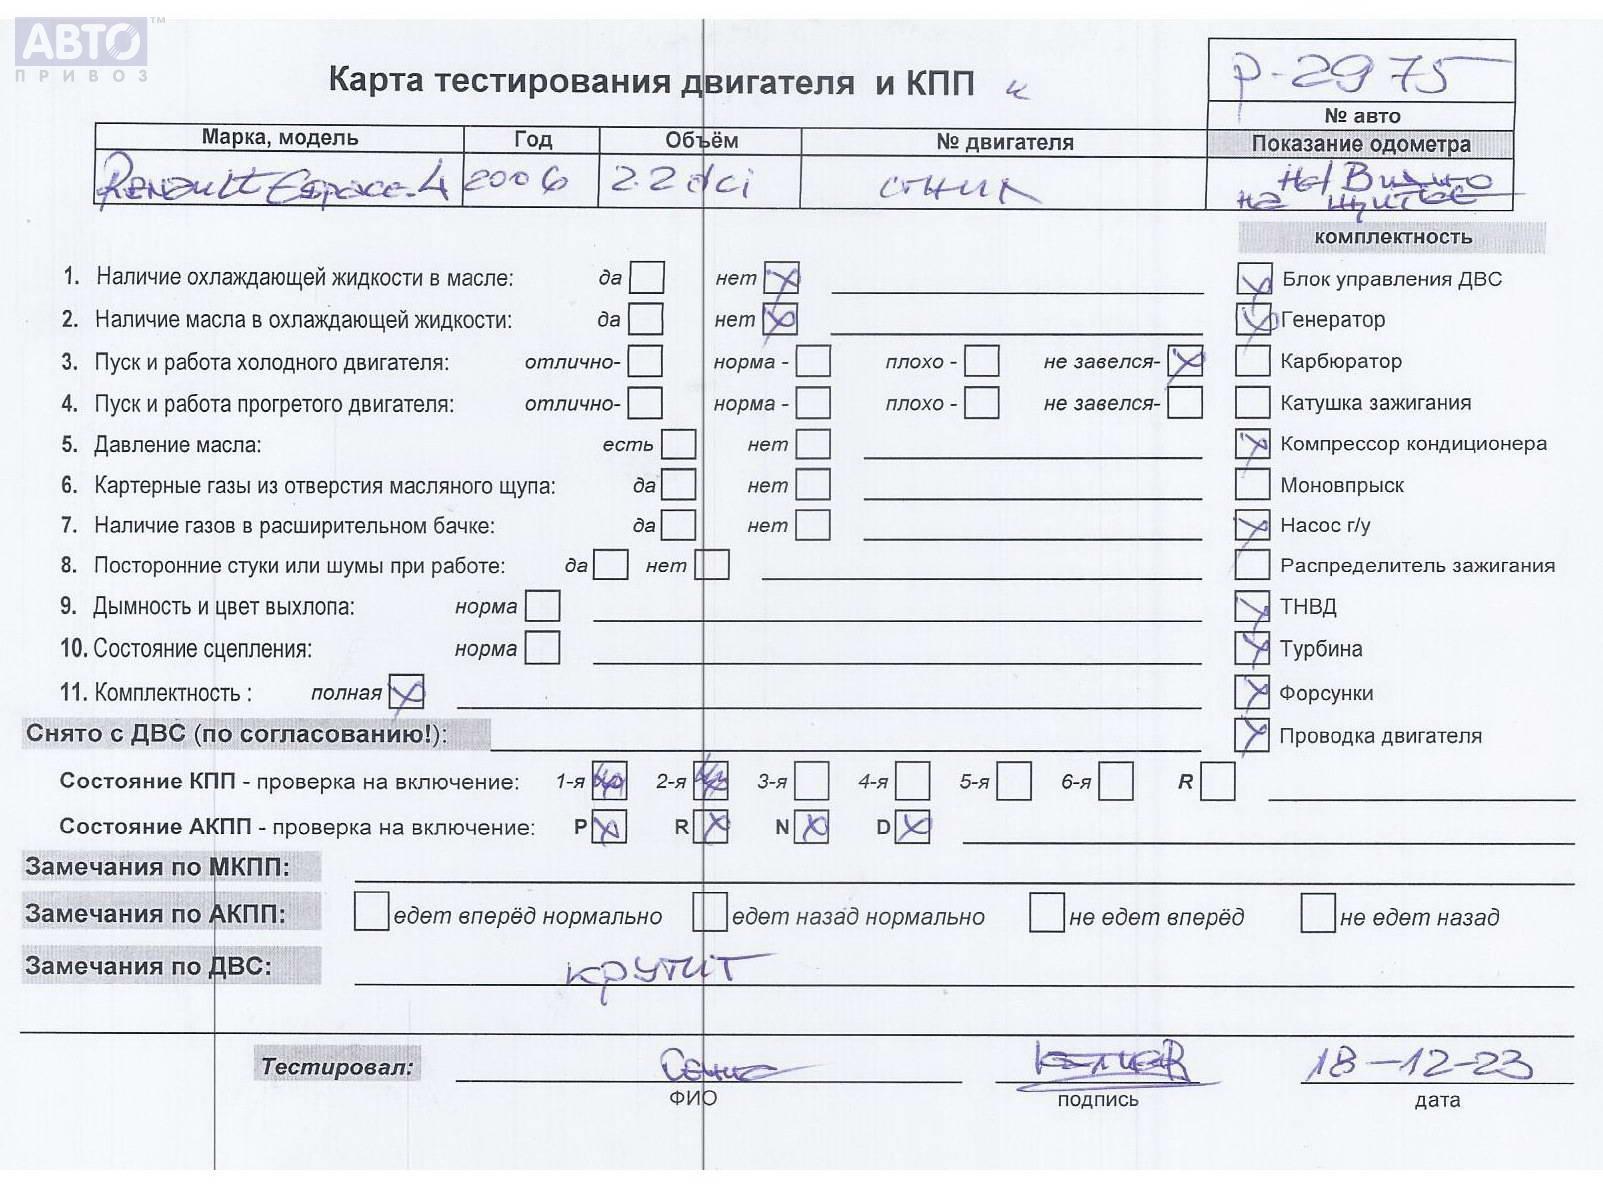 АВТО ™
ПРИВОЗ
Карта тестирования двигателя и КПП
Р-2975
№ авто
Марка, модель Год Объём № двигателя Показание одометра
Renault Espace-4 2006 2.2 dci не видно
на щитке
комплектность
1. Наличие охлаждающей жидкости в масле: да нет Блок управления ДВС
2. Наличие масла в охлаждающей жидкости: да нет Генератор
3. Пуск и работа холодного двигателя: отлично- норма - плохо - не завелся- Карбюратор
4. Пуск и работа прогретого двигателя: отлично- норма - плохо - не завелся- Катушка зажигания
5. Давление масла: есть нет Компрессор кондиционера
6. Картерные газы из отверстия масляного щупа: да нет Моновпрыск
7. Наличие газов в расширительном бачке: да нет Насос г/у
8. Посторонние стуки или шумы при работе: да нет Распределитель зажигания
9. Дымность и цвет выхлопа: норма ТНВД
10. Состояние сцепления: норма Турбина
11. Комплектность : полная Форсунки
Снято с ДВС (по согласованию!): Проводка двигателя
Состояние КПП - проверка на включение: 1-я 2-я 3-я 4-я 5-я 6-я R
Состояние АКПП - проверка на включение: P R N D
Замечания по МКПП:
Замечания по АКПП: едет вперёд нормально едет назад нормально не едет вперёд не едет назад
Замечания по ДВС: крутит
Тестировал: 18-12-23
ФИО подпись дата